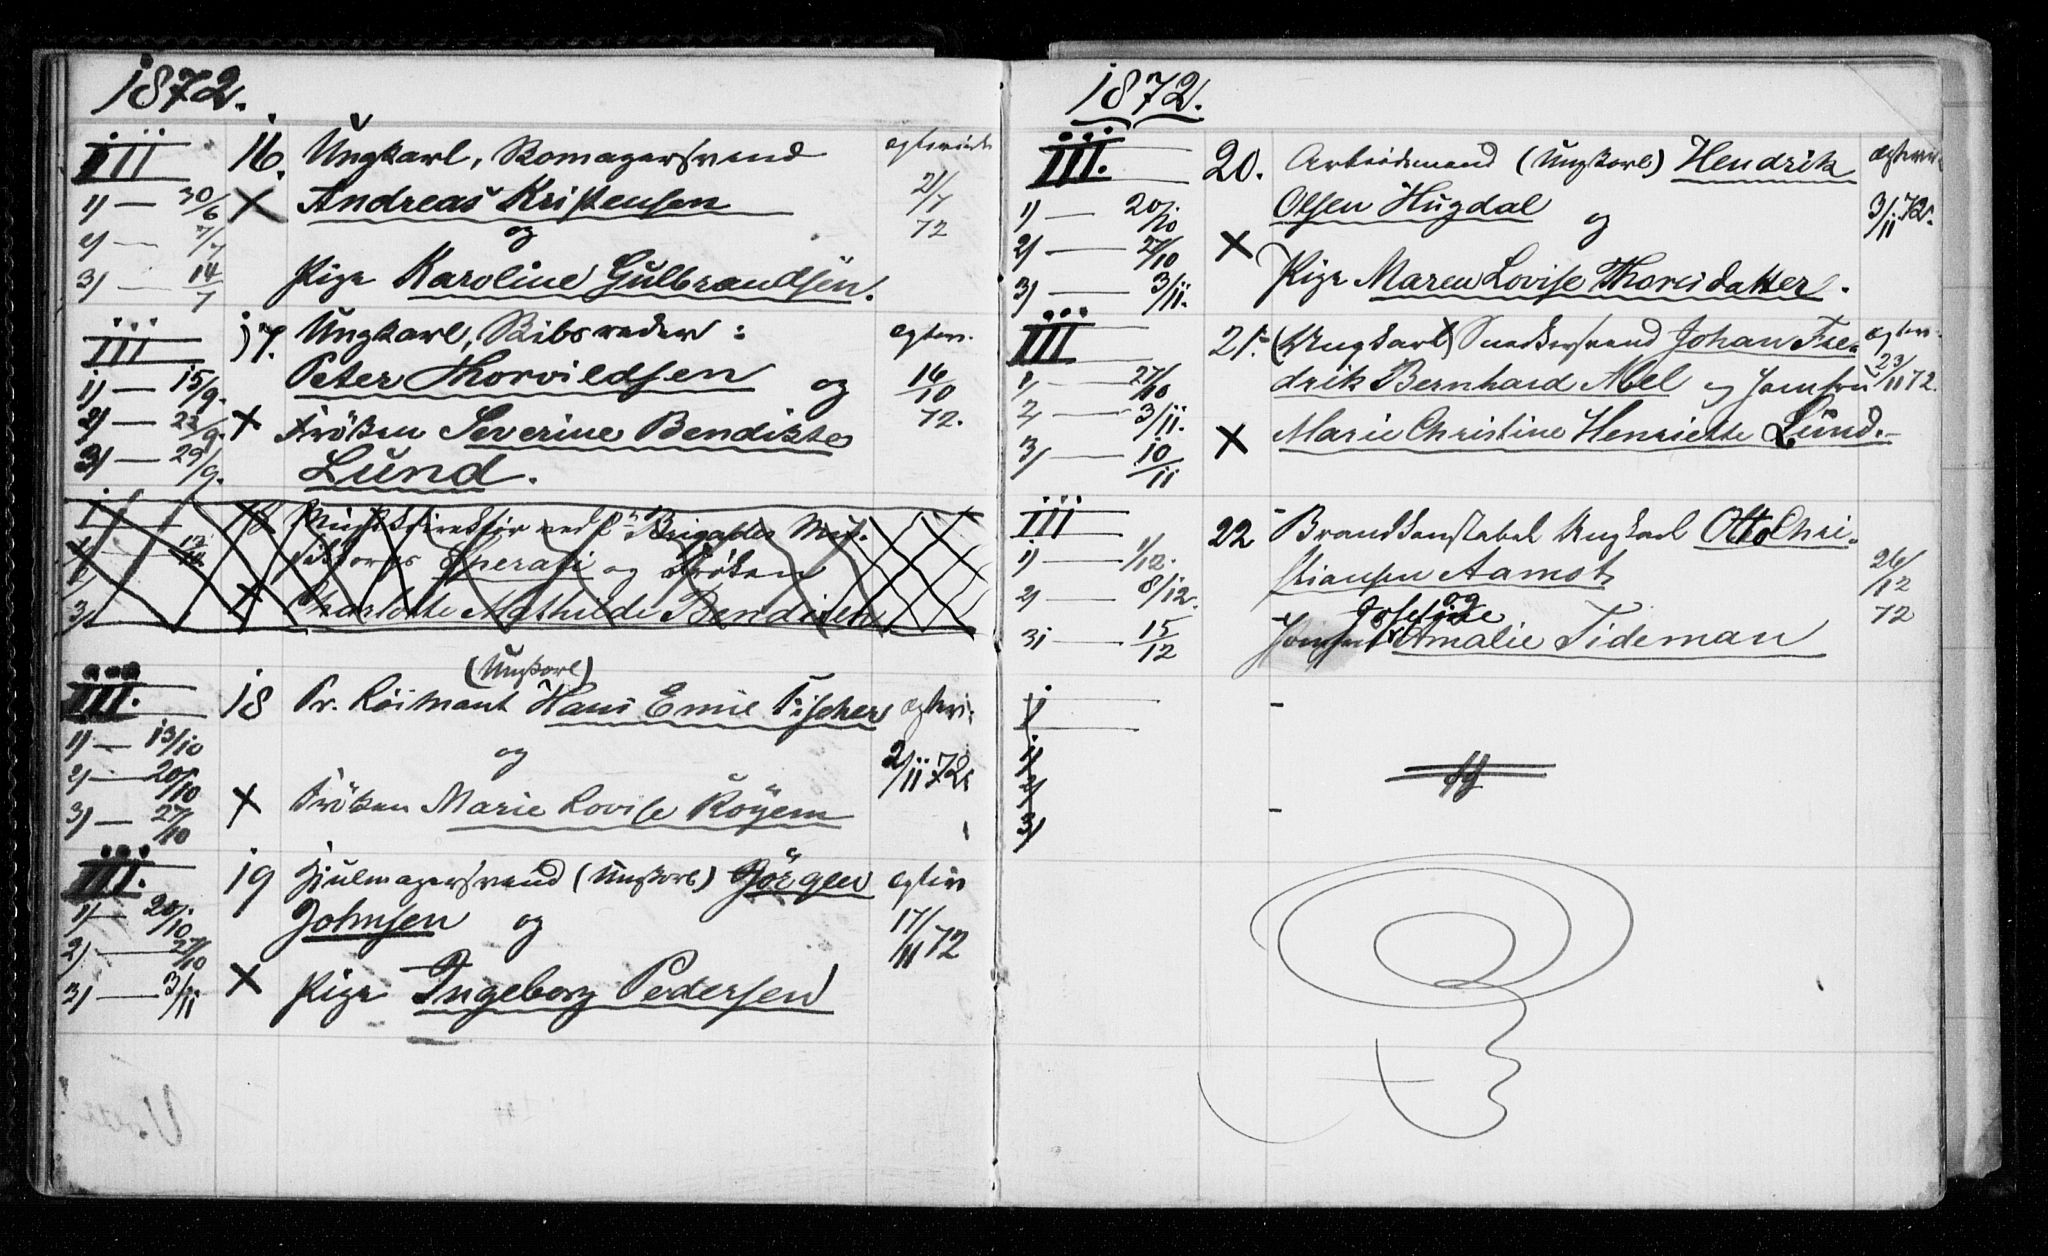 1872.
III
16. Ungkarl, Skomagersvend
Andreas Kristensen
og
Pige Karoline Gulbrandsen.
1) — 30/6 X
2) — 7/7
3) — 14/7
ægtevi
21/7
72
III
17. Ungkarl, Skibsreder:
Peter Thorvildsen og
Frøken Severine Bendikte
Lund.
1) — 15/9.
2) — 22/9. X
3) — 29/9.
egtev.
16/10
72.
Musikdirektør ved Brigades Mu-
Sperati og Frøken
Charlotte Mathilde Bendixen
III.
(Ungkarl)
18 Pr. Løitnant Hans Emil Fischer
og
Frøken Marie Lovise Røyem
1) — 13/10
2) — 20/10
3) — 27/10 X
ægtevi.
2/11 72
III.
19 Hjulmagersvend (Ungkarl) Jörgen
Johnsen og
Pige Ingeborg Pedersen
1) — 20/10
2) — 27/10
3) — 3/11 X
egtev
17/11 72
1872.
III.
20. Arbeidsmand (Ungkarl) Hendrik
Olsen Hugdal og
Pige Maren Lovise Thorsdatter.
1) — 20/10
2) — 27/10 X
3) — 3/11.
3/11 72.
III
21. (Ungkarl) Snedkersvend Johan Fre-
drik Bernhard Abel og Jomfru
Marie Christine Henriette Lund.
1) — 27/10
2) — 3/11.
3) — 10/11 X
egtev.
23/11 72.
III
22 Brandkonstabel Ungkarl Otto Chri-
stiansen Aamot
og
Josefine
Jomfru Amalie Tideman
1) — 1/12.
2) — 8/12.
3) — 15/12
26/12
72
1
1)
2)
3)